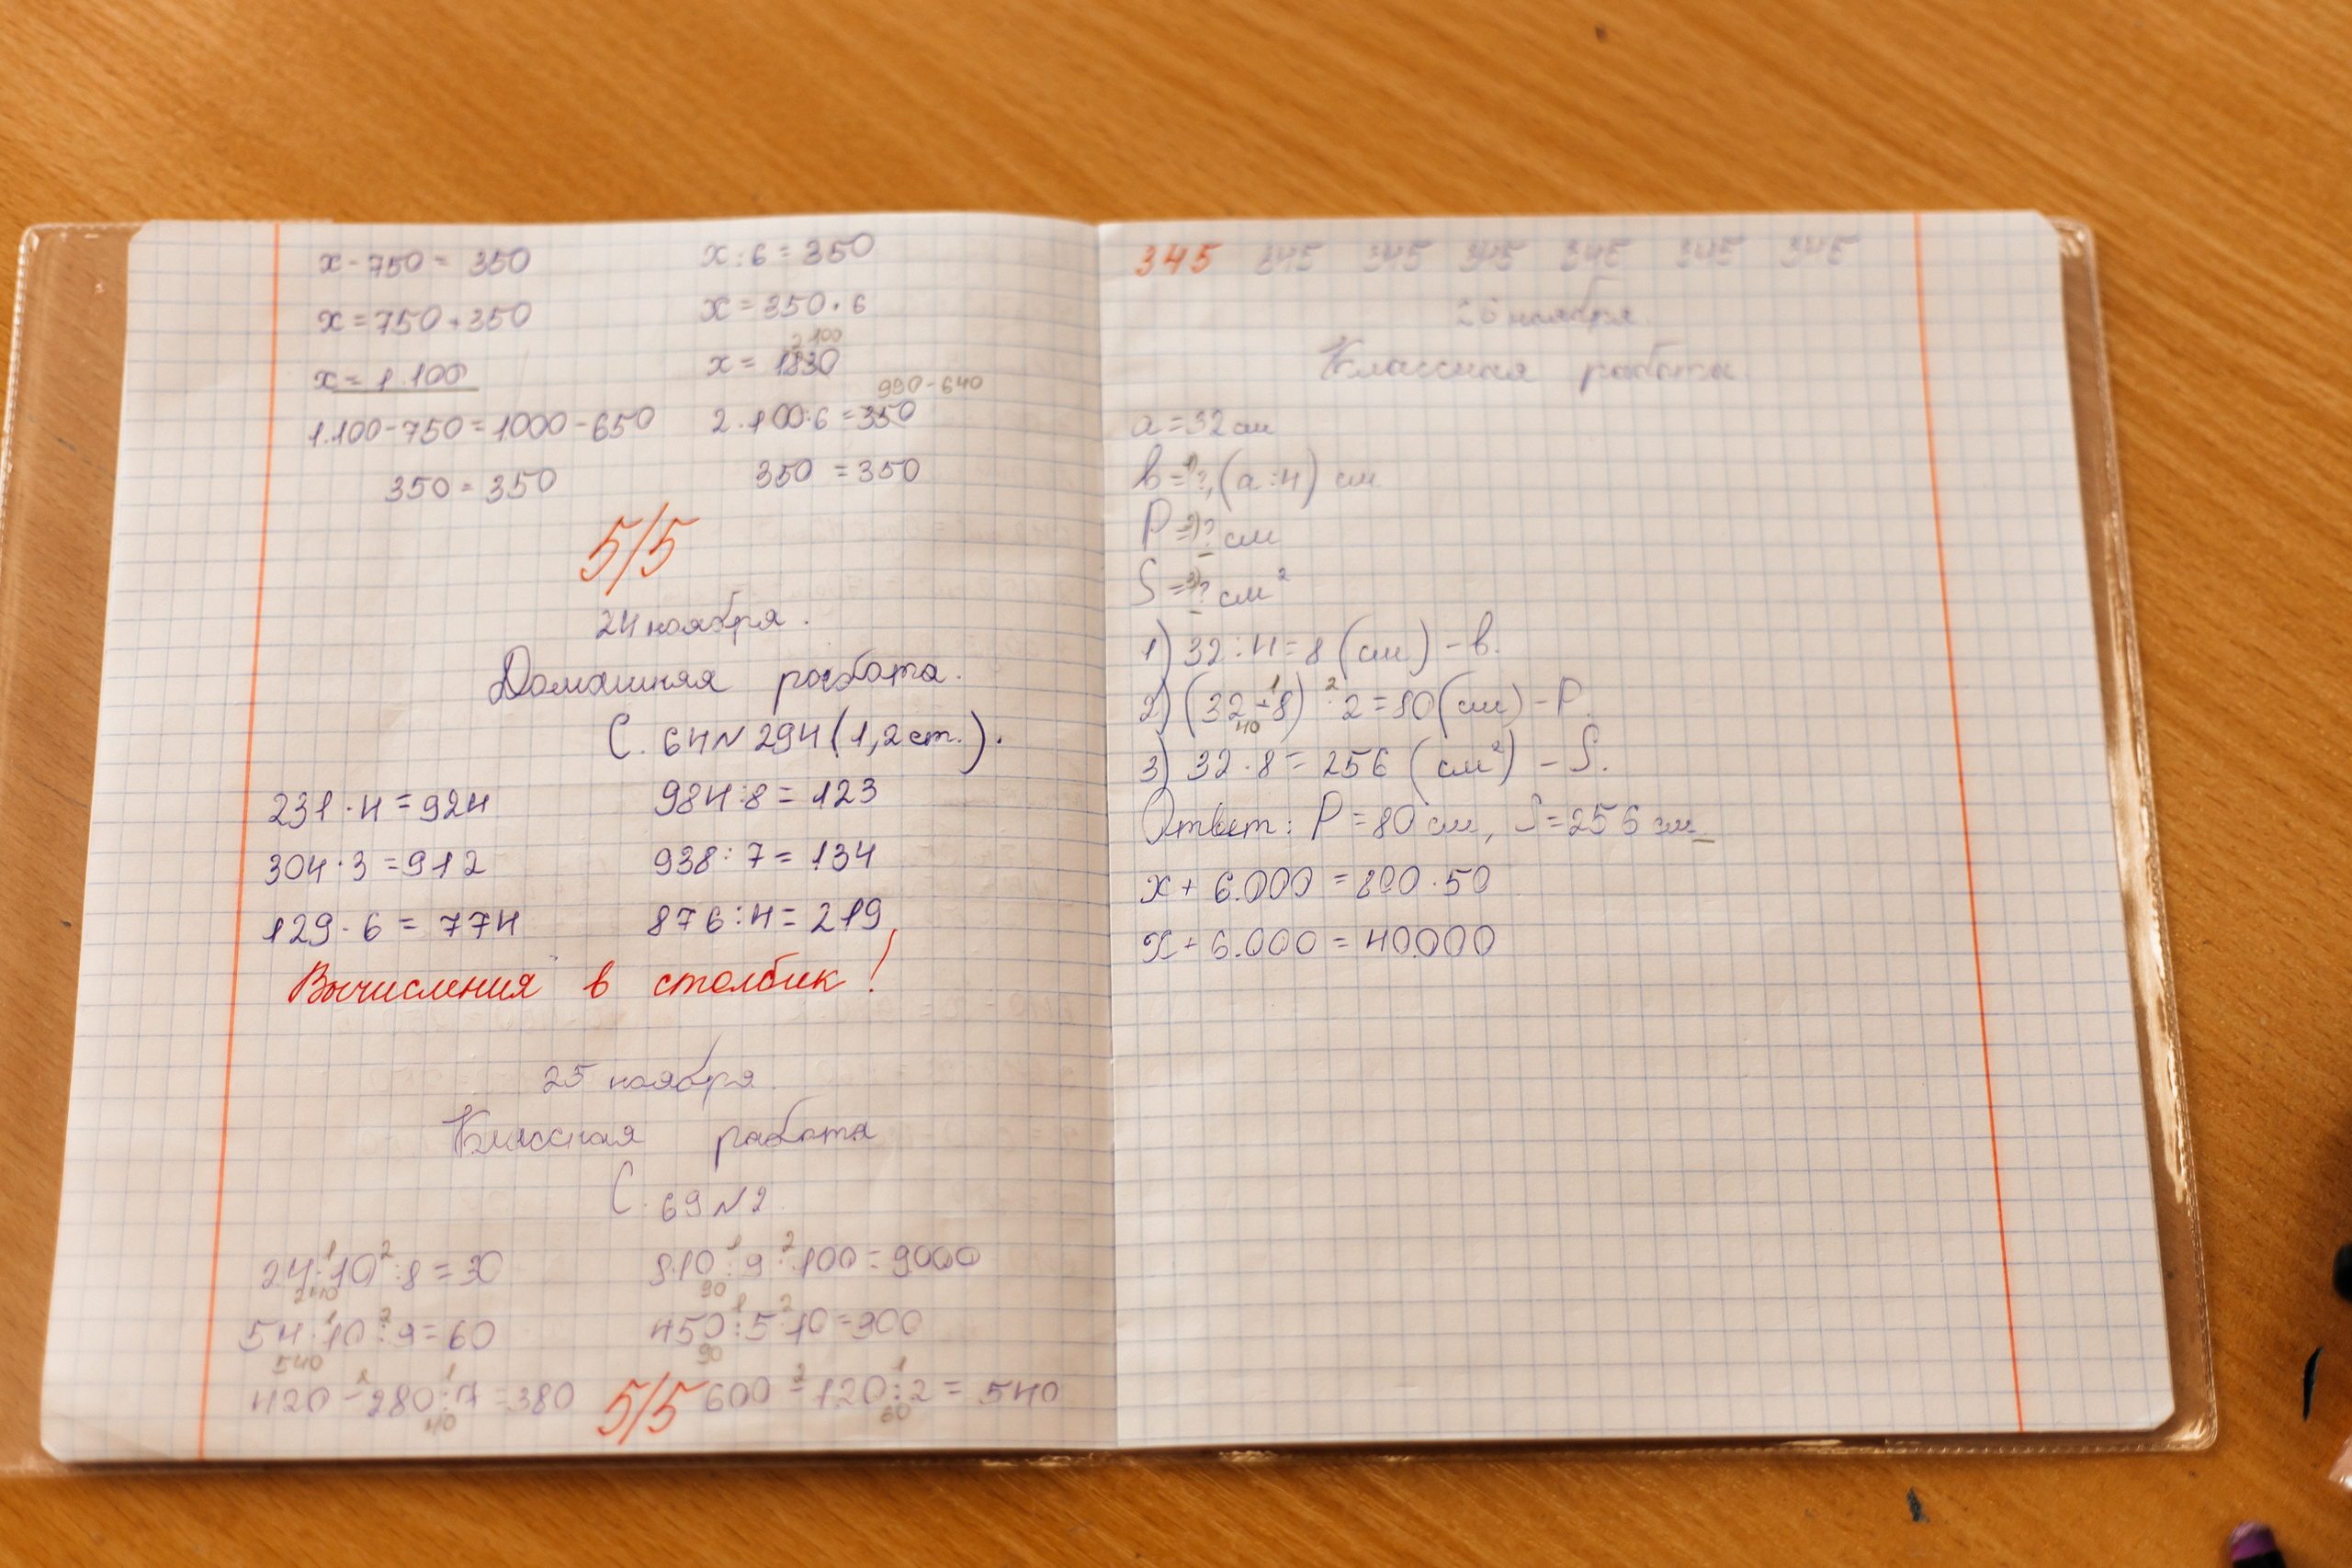 x - 750 = 350
x = 750 + 350
x = 1.100
1.100 - 750 = 1000 - 650
350 = 350
x : 6 = 350
x = 350 · 6
2 100
x = 1830
990 - 640
2.100 : 6 = 350
350 = 350
5/5
24 ноября.
Домашняя работа.
С. 64 N 294 (1,2 ст.).
231 · 4 = 924
304 · 3 = 912
129 · 6 = 774
984 : 8 = 123
938 : 7 = 134
876 : 4 = 219
Вычисления в столбик!
25 ноября.
Классная работа
С. 69 N 2
1 2
24 · 10 : 8 = 30
240
1 2
54 · 10 : 9 = 60
540
2 1
420 - 280 : 7 = 380
40
1 2
810 : 9 · 100 = 9000
90
1 2
450 : 5 · 10 = 900
90
2 1
600 - 120 : 2 = 540
60
5/5
345 345 345 345 345 345 345
26 ноября.
Классная работа
a = 32 см
b = ?, (a : 4) см
P = ? см
S = ? см²
1) 32 : 4 = 8 (см) - b.
1 2
2) (32 + 8) · 2 = 80 (см) - P.
40
3) 32 · 8 = 256 (см²) - S.
Ответ: P = 80 см, S = 256 см
x + 6.000 = 800 · 50
x + 6.000 = 40.000